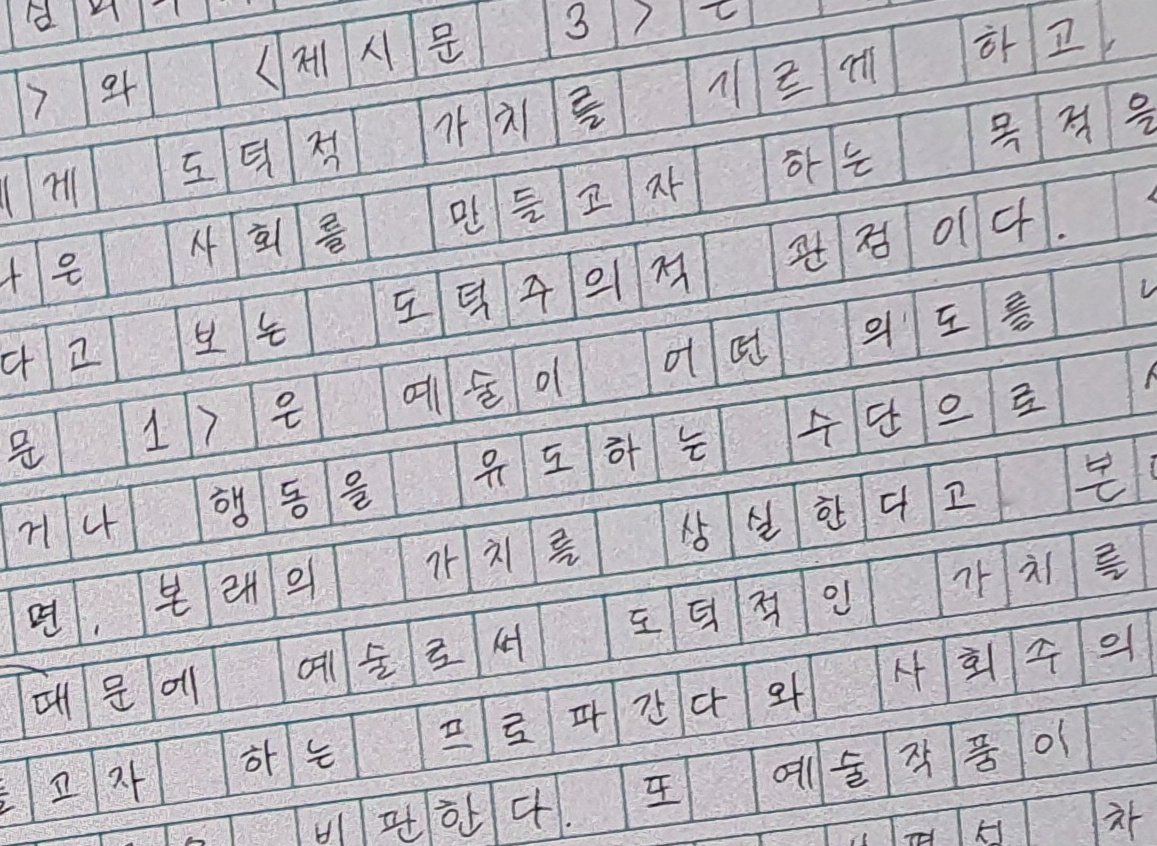 > 와 <제시문 3>은
게 도덕적 가치를 기르게 하고,
은 사회를 만들고자 하는 목적을
다고 보는 도덕주의적 관점이다. <
문 1>은 예술이 어떤 의도를
거나 행동을 유도하는 수단으로
면, 본래의 가치를 상실한다고 본다
때문에 예술로써 도덕적인 가치를
고자 하는 프로파간다와 사회주의
비판한다. 또 예술작품이